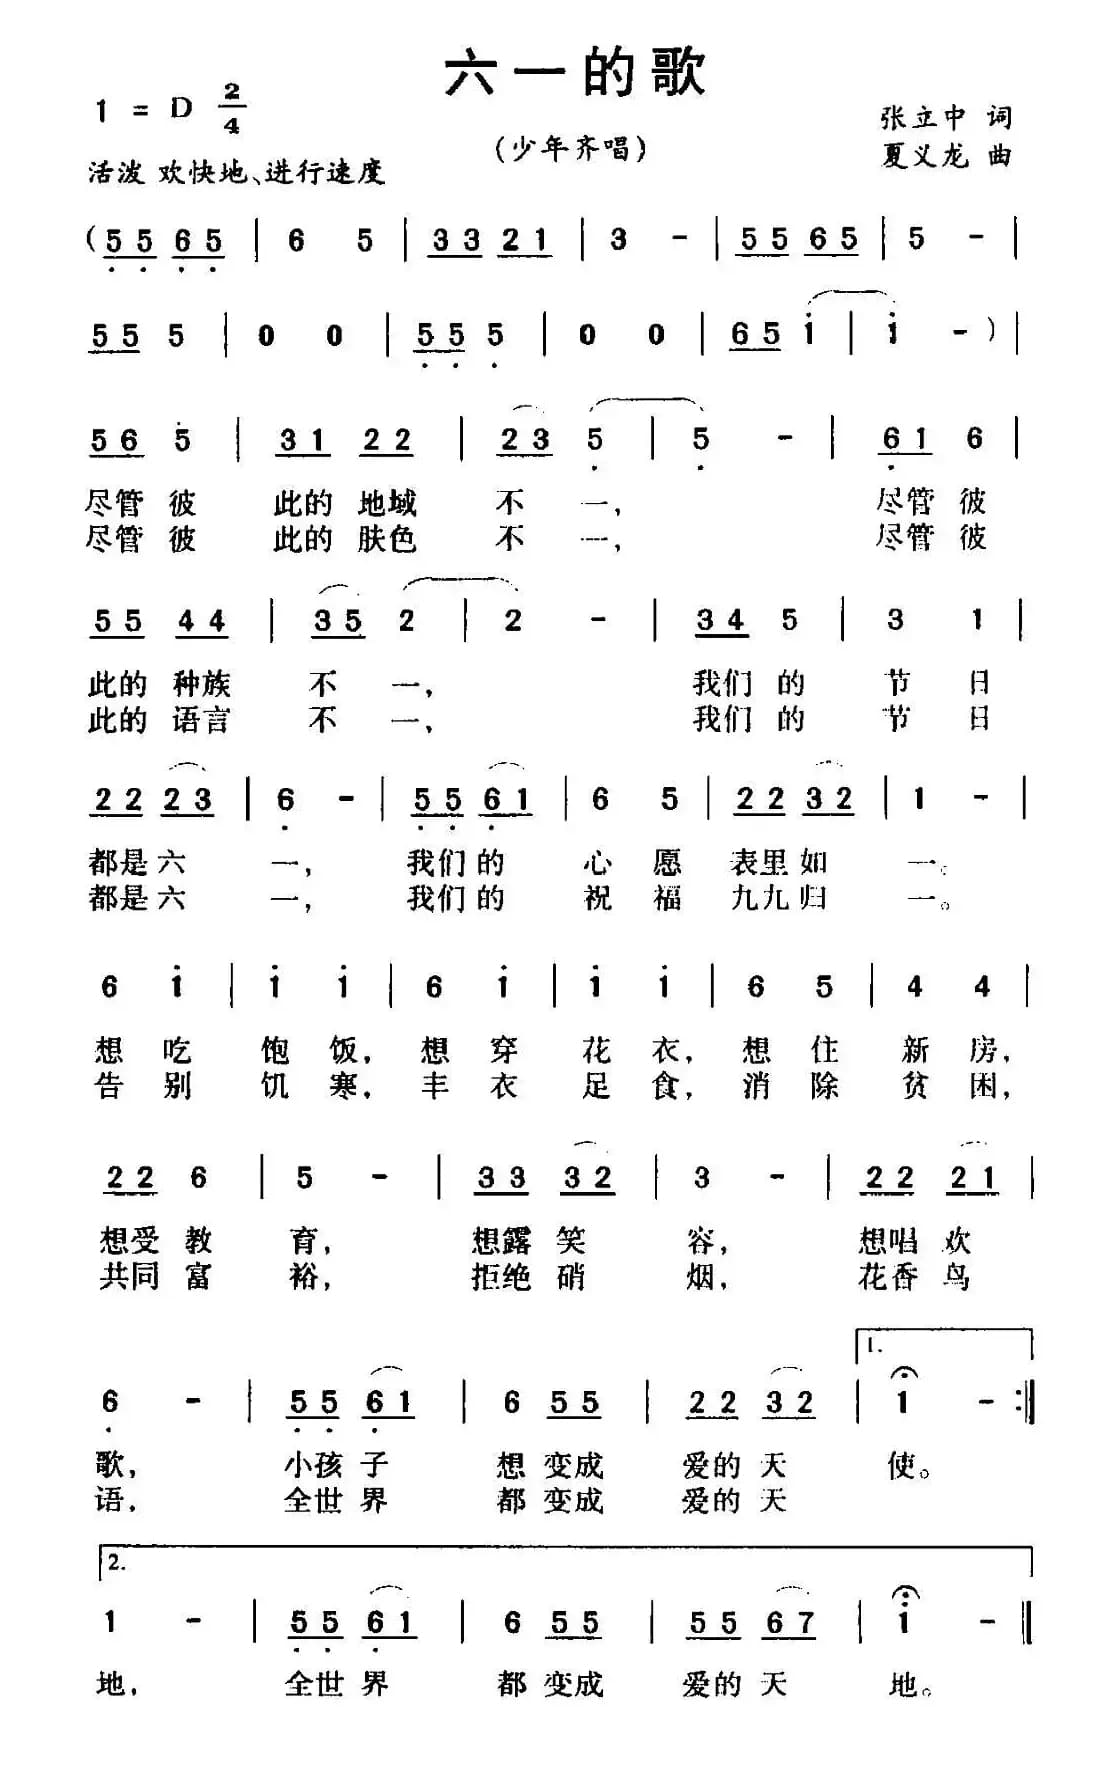 六一的歌
1 = D 2/4
(少年齐唱)
张立中 词
夏义龙 曲
活泼 欢快地、进行速度
(5 5 6 5 | 6 5 | 3 3 2 1 | 3 - | 5 5 6 5 | 5 - |
5 5 5 | 0 0 | 5 5 5 | 0 0 | 6 5 i | i - ) |
5 6 5 | 3 1 2 2 | 2 3 5 | 5 - | 6 1 6 |
尽管 彼 此的 地域 不 一, 尽管 彼
尽管 彼 此的 肤色 不 一, 尽管 彼
5 5 4 4 | 3 5 2 | 2 - | 3 4 5 | 3 1 |
此的 种族 不 一, 我们 的 节 日
此的 语言 不 一, 我们 的 节 日
2 2 2 3 | 6 - | 5 5 6 1 | 6 5 | 2 2 3 2 | 1 - |
都是 六 一, 我们 的 心 愿 表里 如 一。
都是 六 一, 我们 的 祝 福 九九 归 一。
6 i | i i | 6 i | i i | 6 5 | 4 4 |
想 吃 饱 饭, 想 穿 花 衣, 想 住 新 房,
告 别 饥 寒, 丰 衣 足 食, 消 除 贫 困,
2 2 6 | 5 - | 3 3 3 2 | 3 - | 2 2 2 1 |
想受 教 育, 想露 笑 容, 想唱 欢
共同 富 裕, 拒绝 硝 烟, 花香 鸟
1.
6 - | 5 5 6 1 | 6 5 5 | 2 2 3 2 | 1 - :||
歌, 小孩 子 想 变成 爱的 天 使。
语, 全世 界 都 变成 爱的 天
2.
1 - | 5 5 6 1 | 6 5 5 | 5 5 6 7 | i - ||
地, 全世 界 都 变成 爱的 天 地。